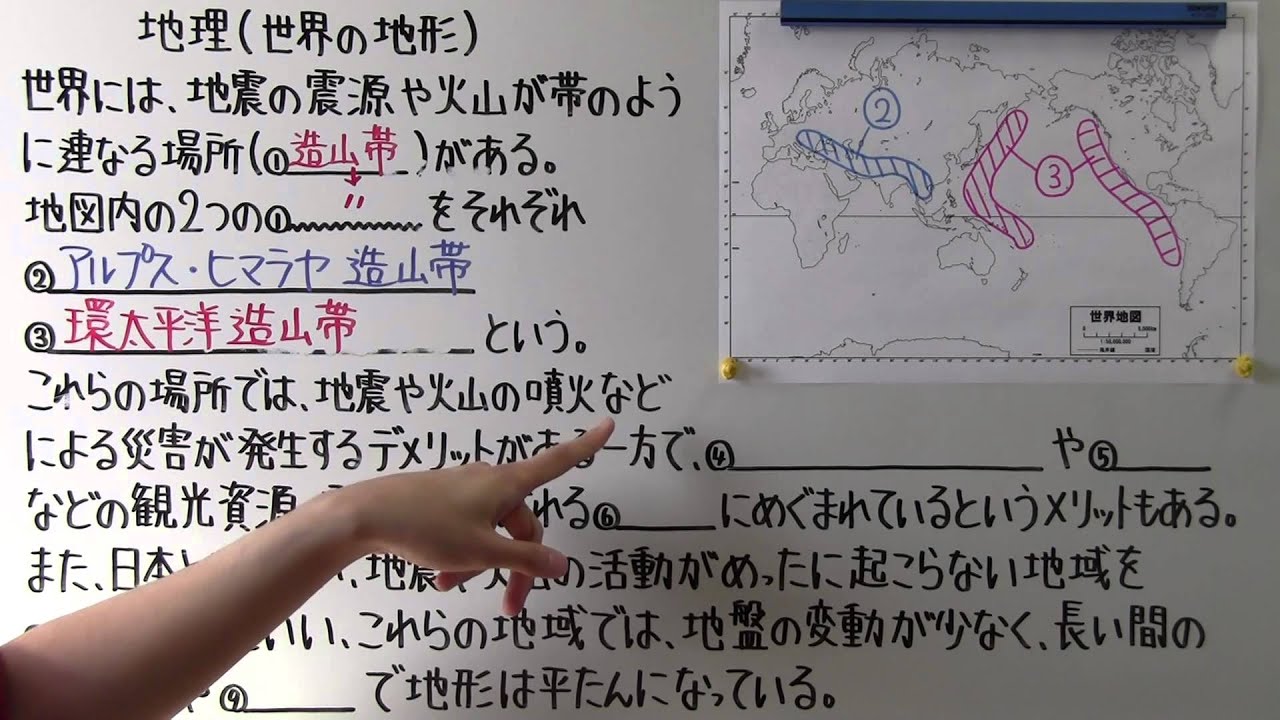 地理(世界の地形)
世界には、地震の震源や火山が帯のよう
に連なる場所(①造山帯)がある。
↓
〃
地図内の2つの① をそれぞれ
②アルプス・ヒマラヤ造山帯
③環太平洋造山帯 という。
これらの場所では、地震や火山の噴火など
による災害が発生するデメリットがある一方で、④ や⑤
などの観光資源 れる⑥ にめぐまれているというメリットもある。
また、日本と の活動がめったに起こらない地域を
いい、これらの地域では、地盤の変動が少なく、長い間の
や⑨ で地形は平たんになっている。
②
③
世界地図